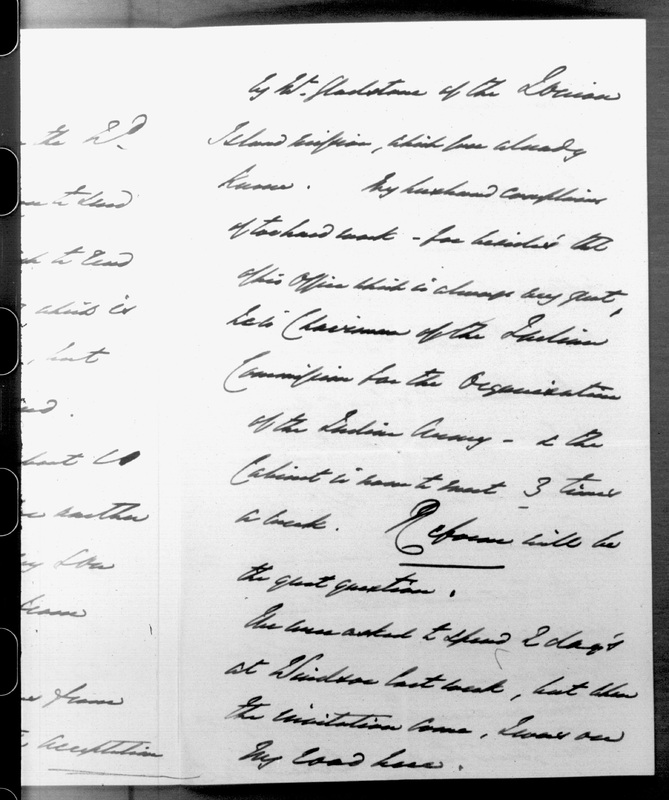 the Wd.
to send
to send
which is
, but
about
another
my Son
from
acceptation
by Mr. Gladstone of the Ionian
Island mission, which you already
know. My husband complains
of too hard work - for besides the
of his Office which is always very great,
he is Chairman of the Indian
Commission for the Organisation
of the Indian Army - & the
Cabinet is now to meet 3 times
a week. Reform will be
the great question.
We were asked to spend 2 days
at Windsor last week, but when
the invitation came, I was on
my road here.